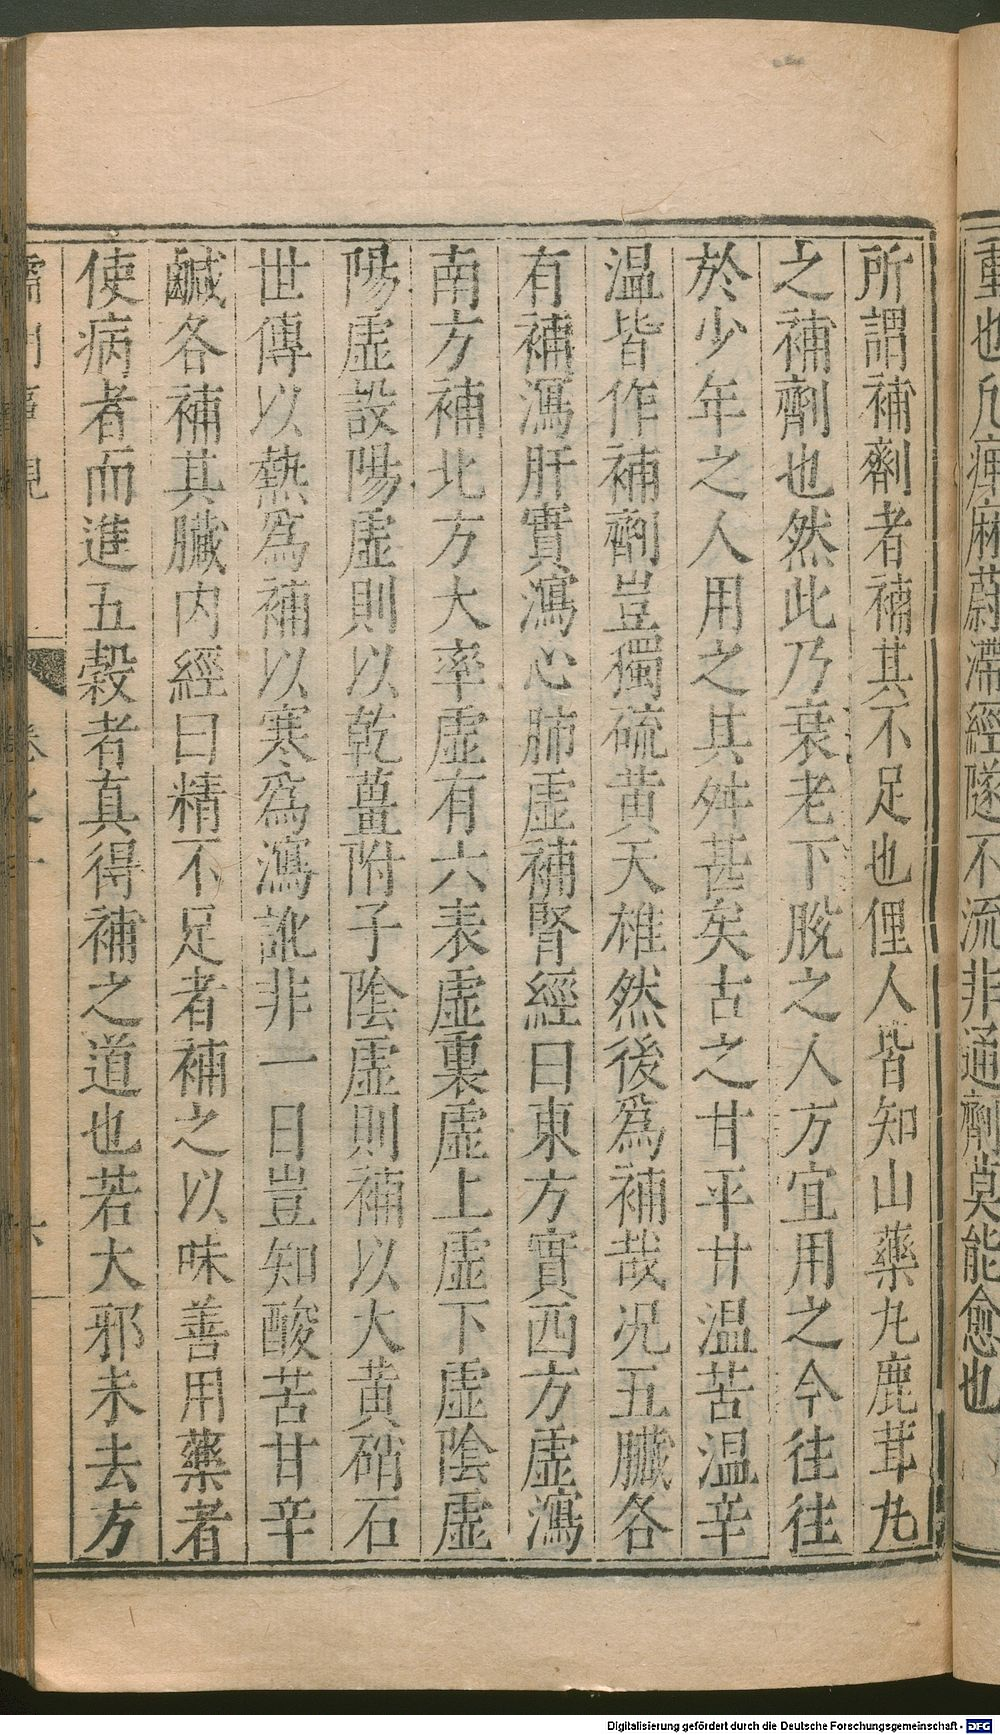 重也凡痹麻蔚滯經隧不流非通劑莫能愈也
所謂補劑者補其不足也俚人皆知山藥丸鹿茸丸
之補劑也然此乃衰老下脫之人方宜用之今往往
於少年之人用之其舛甚矣古之甘平甘温苦温辛
温皆作補劑豈獨硫黃天雄然後爲補哉况五臟各
有補瀉肝實瀉心肺虛補腎經曰東方實西方虛瀉
南方補北方大率虛有六表虛裏虛上虛下虛陰虛
陽虛設陽虛則以乾薑附子陰虛則補以大黃硝石
世傳以熱爲補以寒爲瀉訛非一日豈知酸苦甘辛
鹹各補其臟内經曰精不足者補之以味善用藥者
使病者而進五穀者真得補之道也若大邪未去方
Digitalisierung gefördert durch die Deutsche Forschungsgemeinschaft - DFG